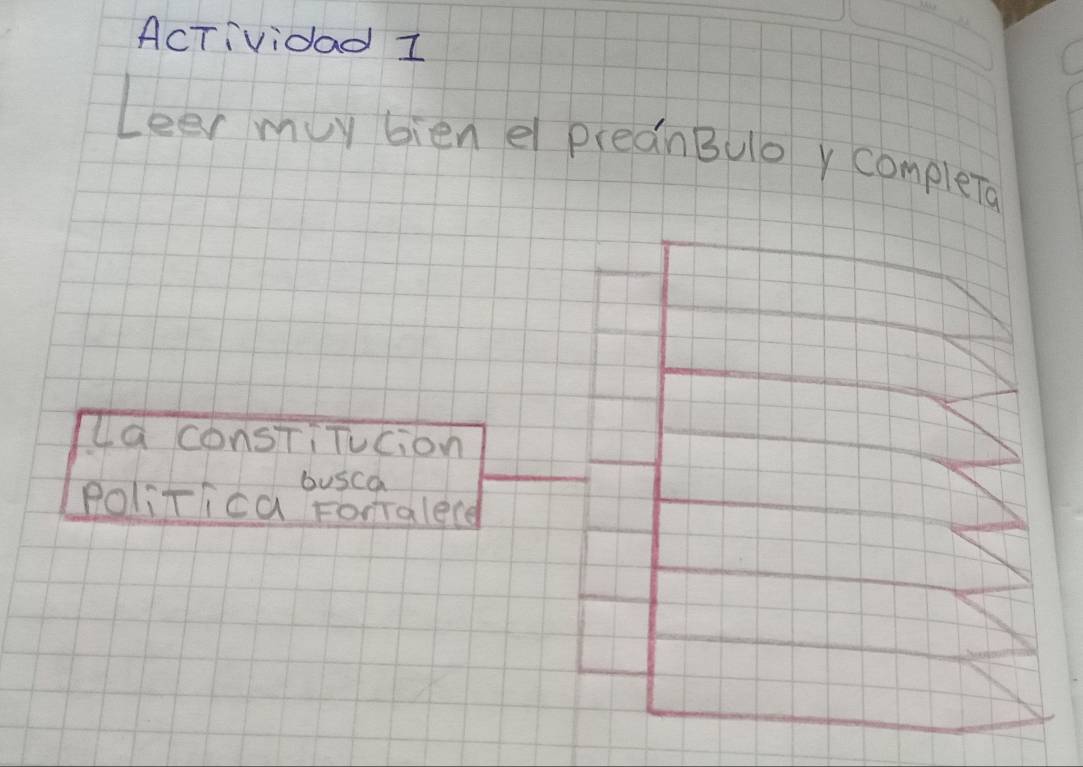 Actividad 1
Leer muy bien el preánBulo y completa
La consTiTucion
busca
PoliTica ForTalece